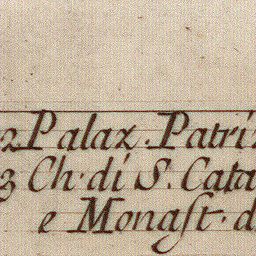 2 Palaz. Patriz
3 Ch. di S. Cata
e Monaſt. d